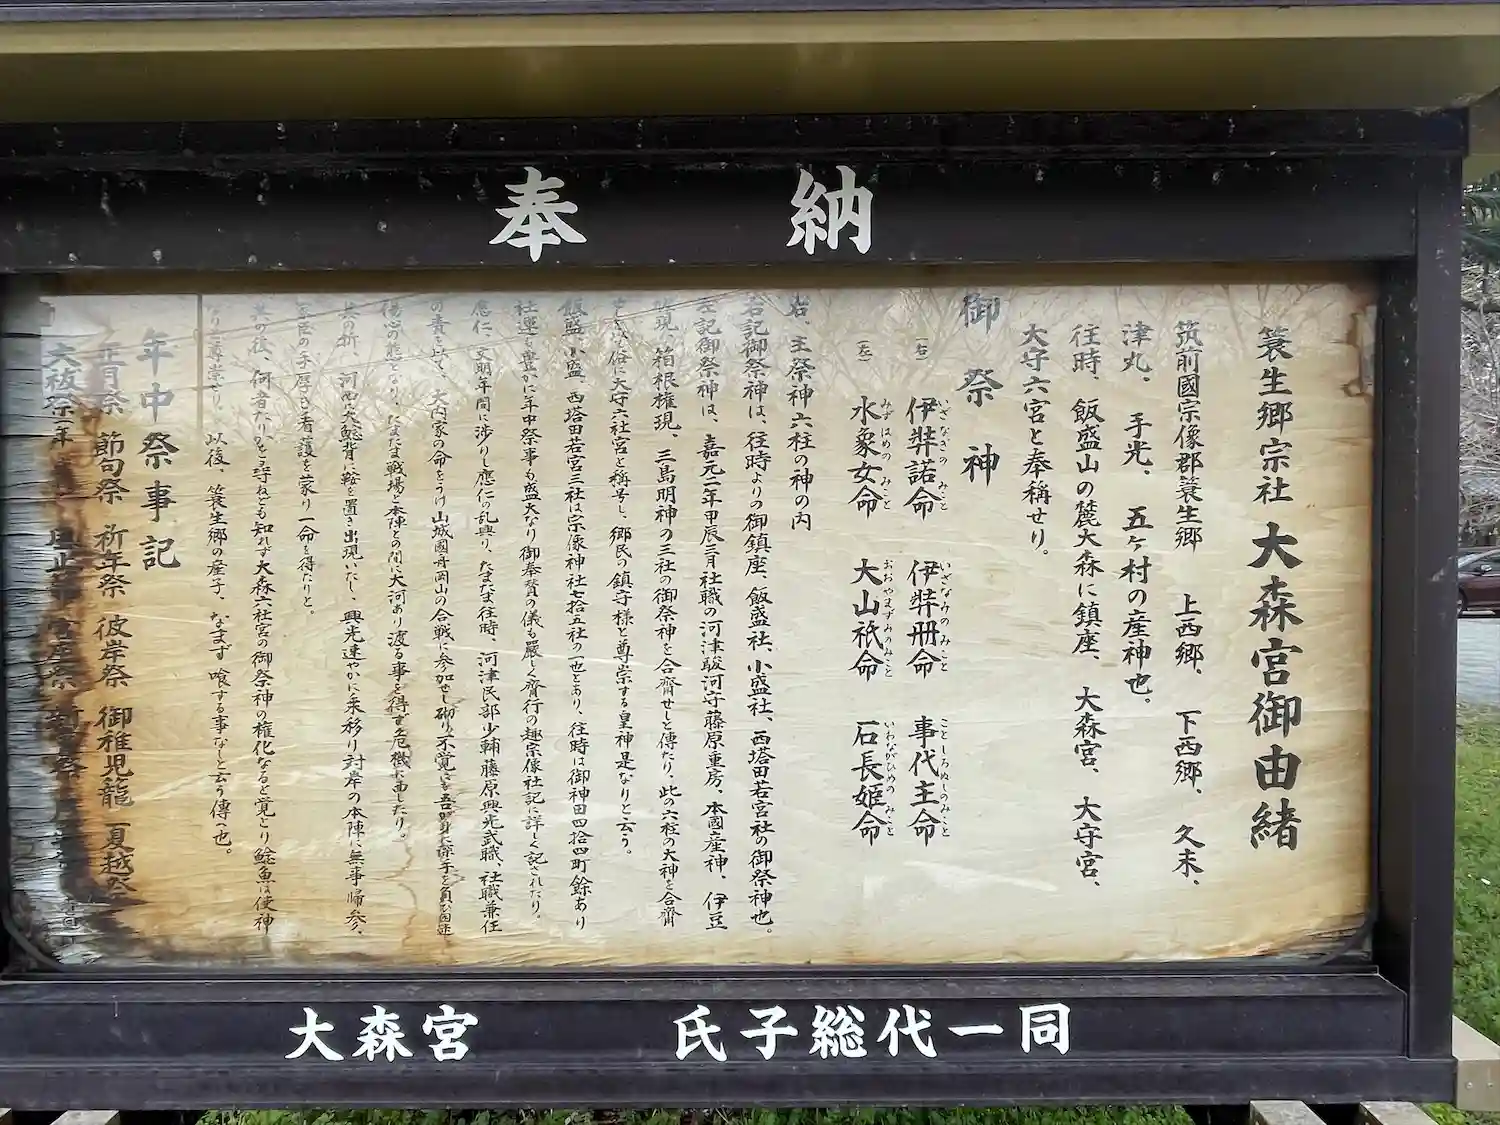 奉納
蓑生郷宗社 大森宮御由緒
筑前國宗像郡蓑生郷 上西郷、下西郷、久末、
津丸、手光、五ヶ村の産神也。
往時、飯盛山の麓大森に鎮座、大森宮、大守宮、
大守六宮と奉稱せり。
御祭神
(右) 伊弉諾命 伊弉冊命 事代主命
いざなぎのみこと いざなみのみこと ことしろぬしのみこと
(左) 水象女命 大山祇命 石長姫命
みずはめのみこと おおやまずみのみこと いわながひめのみこと
右、主祭神六柱の神の内
右記御祭神は、往時よりの御鎮座、飯盛社、小盛社、西塔田若宮社の御祭神也。
左記御祭神は、嘉元二年甲辰三月社職の河津駿河守藤原重房、本國産神、伊豆
権現、箱根権現、三島明神の三社の御祭神を合齊せしと傳たり、此の六柱の大神を合齊
俗に大守六社宮と稱号し、郷民の鎮守様と尊崇する皇神是なりと云う。
飯盛、小盛、西塔田若宮三社は宗像神社七拾五社の一也とあり、往時は御神田四拾四町餘あり
社運も豊かに年中祭事も盛大なり御奉賛の儀も嚴しく齊行の趣宗像社記に詳しく記されたり。
應仁、文明年間に渉りし應仁の乱興り、たまたま往時、河津民部少輔藤原興光武職、社職兼任
の責を以て、大内家の命をうけ山城國舟岡山の合戦に参加せし砌り、不覚にも吾身
たまたま戦場と本陣との間に大河あり渡る事を得ず危機に面したり。
其の折、河面に大鯰背に鞍を置き出現いたし、興光速やかに乗移り対岸の本陣に無事帰参、
手厚き看護を蒙り一命を得たりと。
其の後、何者たりかと尋ねども知れず大森六社宮の御祭神の権化なると覚とり鯰魚は使神
なりと尊崇せり、以後、蓑生郷の産子、なまず喰する事なしと云う傳也。
年中祭事記
節句祭 祈年祭 彼岸祭 御稚児籠 夏越祭
大祓祭
大森宮 氏子総代一同